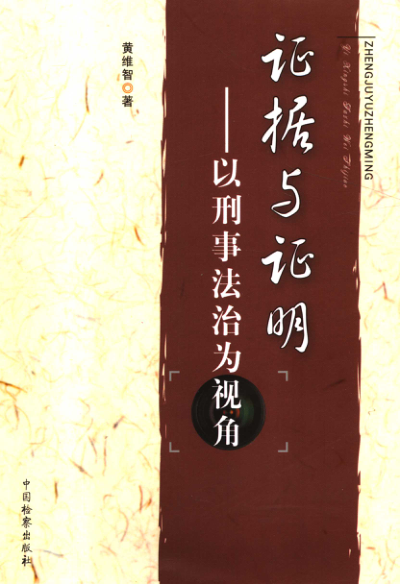 ZHENGJUYUZHENGMING
Yi Xingshi Fazhi Wei Shijiao
证据与证明
——以刑事法治为视角
黄维智 著
中国检察出版社